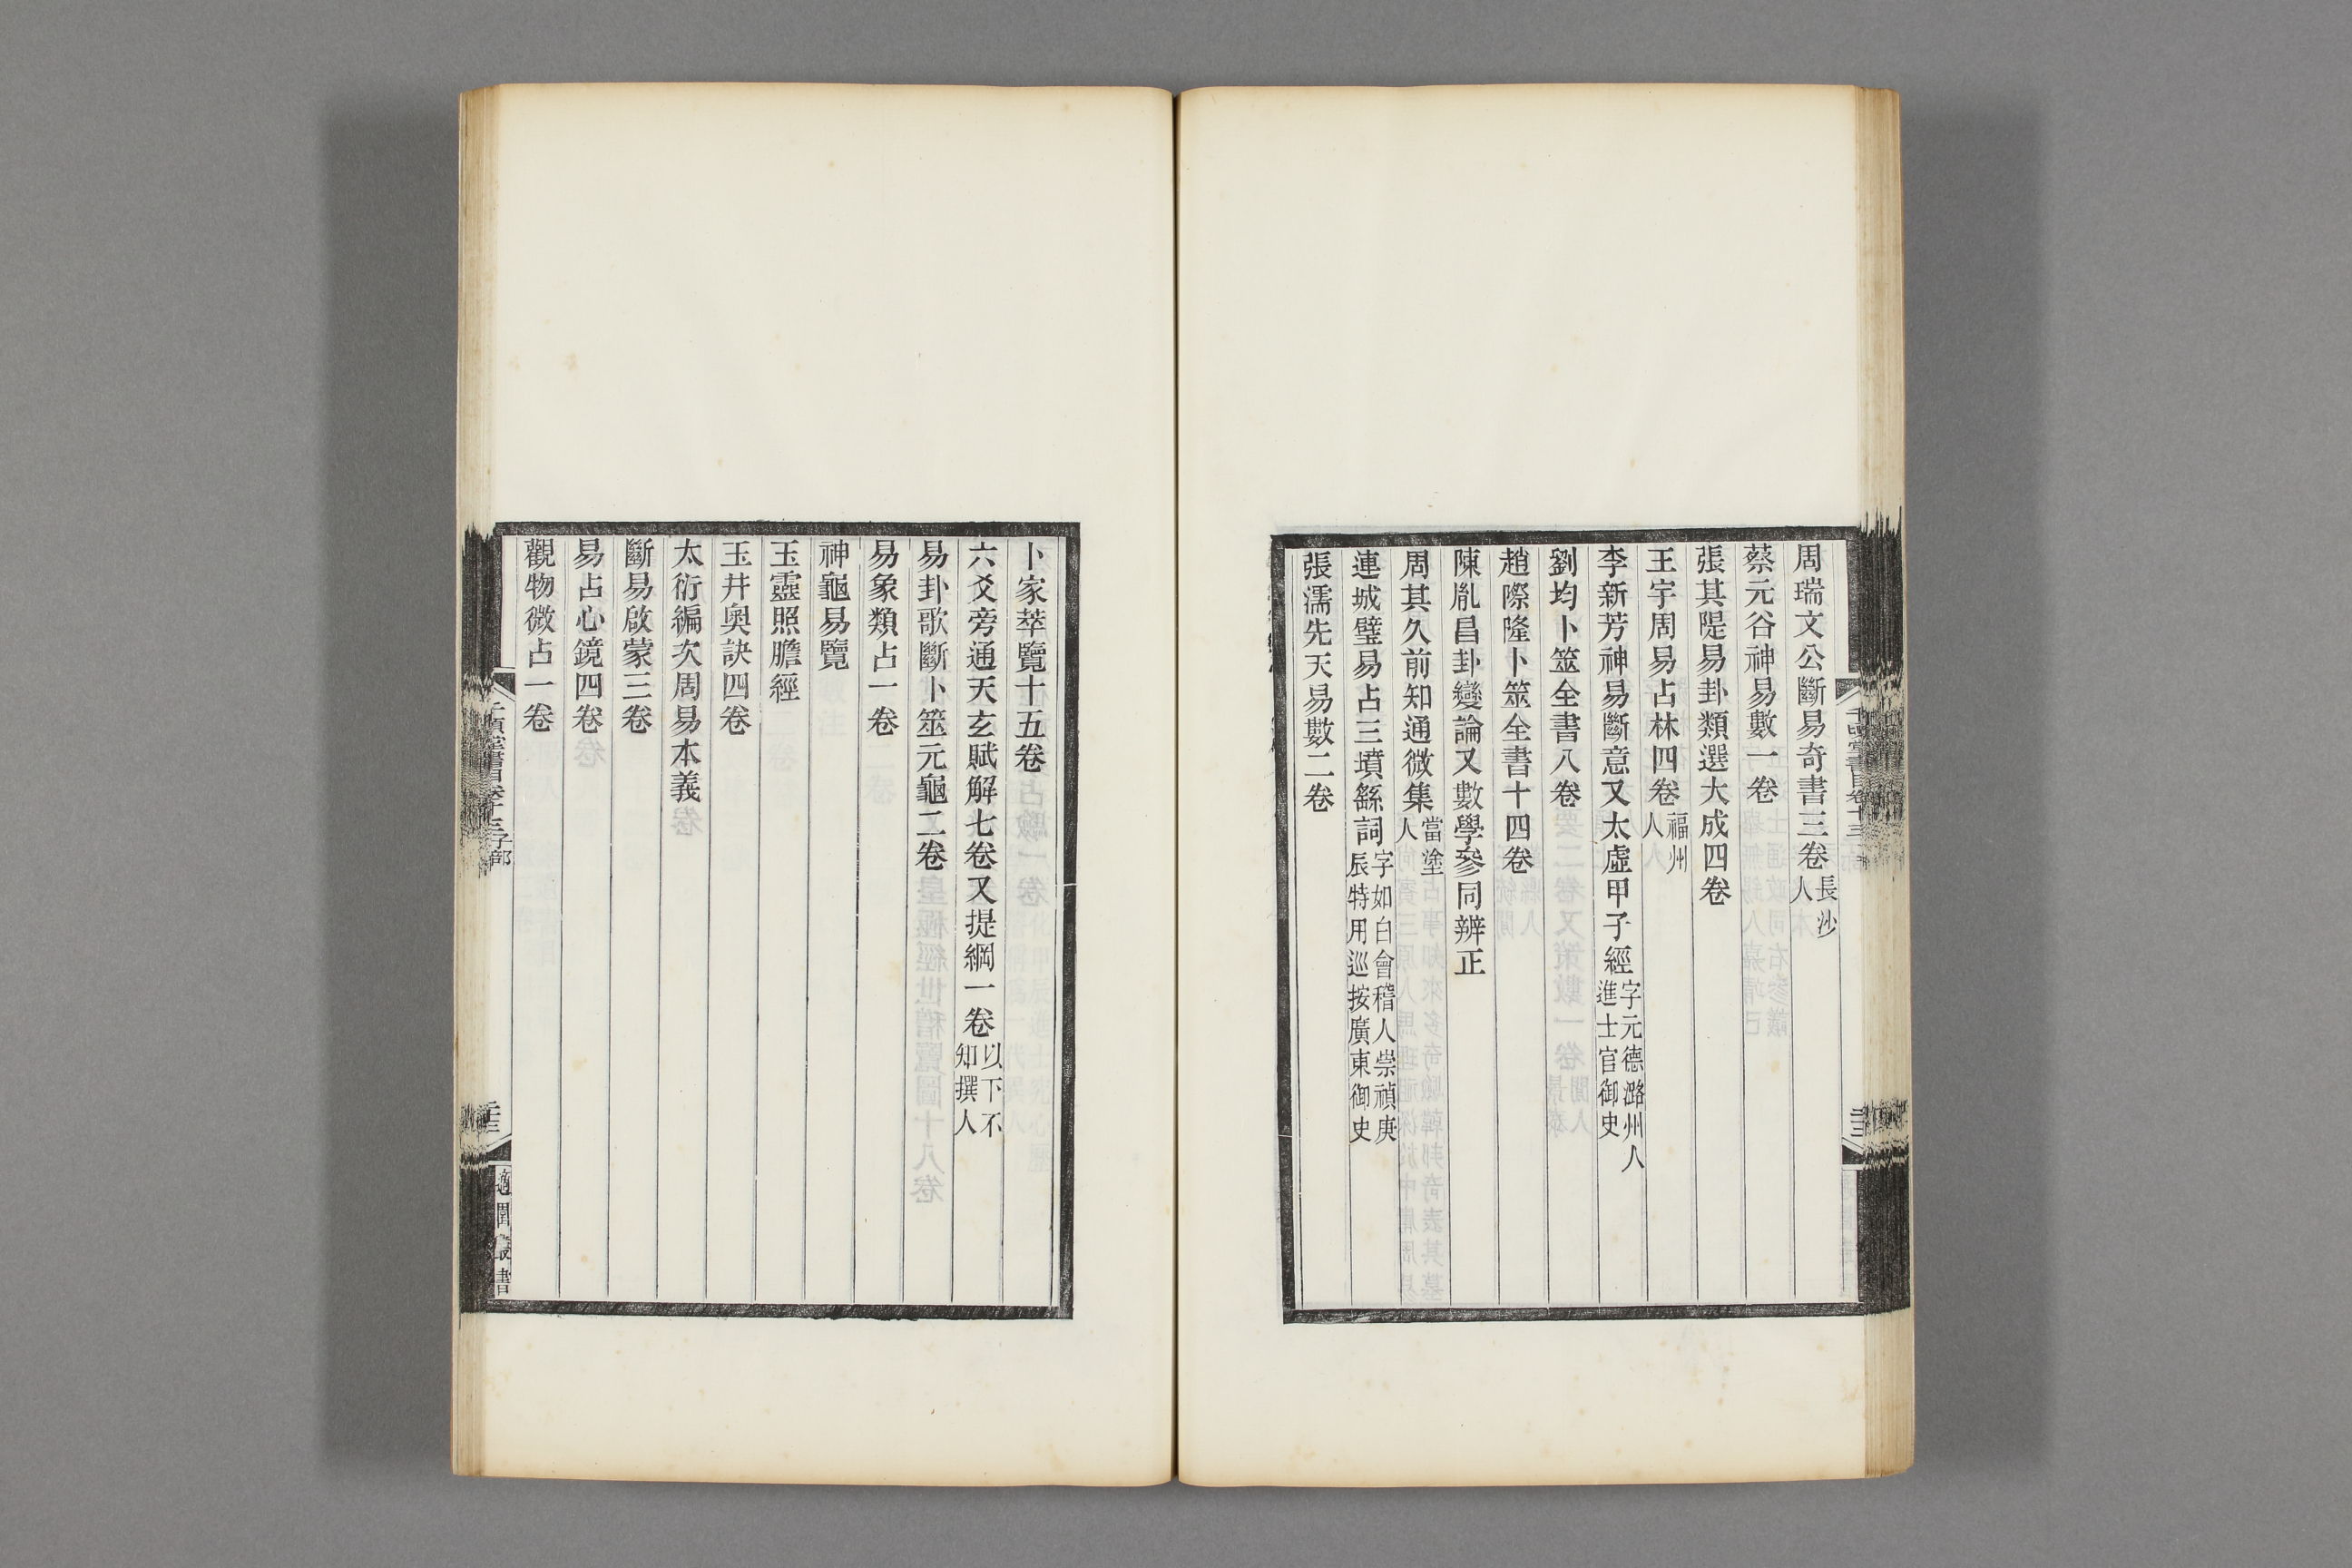 周瑞文公斷易奇書三卷長沙人
蔡元谷神易數一卷
張其隄易卦類選大成四卷
王宇周易占林四卷福州人
李新芳神易斷意又太虛甲子經字元德潞州人進士官御史
劉均卜筮全書八卷
趙際隆卜筮全書十四卷
陳胤昌卦變論又數學參同辨正
周其久前知通微集當塗人
連城璧易占三墳繇詞字如白會稽人崇禎庚辰特用巡按廣東御史
張濡先天易數二卷
卜家萃覽十五卷
六爻旁通天玄賦解七卷又提綱一卷以下不知撰人
易卦歌斷卜筮元龜二卷
易象類占一卷
神龜易覽
玉靈照膽經
玉井奧訣四卷
太衍編次周易本義
斷易啟蒙三卷
易占心鏡四卷
觀物微占一卷
千頃堂書目卷十三子部
適園叢書